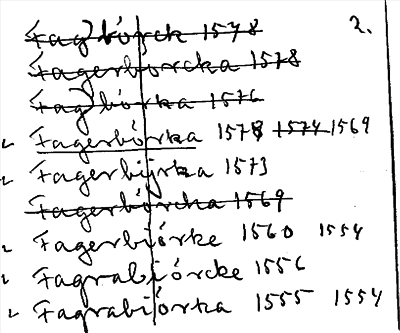 Fagbiörck 1578 2.
Fagerbiorcka 1578
Fagbiörka 1576
Fagerbiörka 1578 1574 1569
Fagerbijrka 1573
Fagerbiörcka 1569
Fagerbiörke 1560 1554
Fagrabiörcke 1556
Fagrabiörka 1555 1554